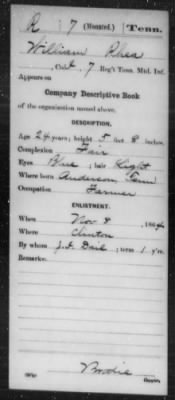 R 7 (Mounted.) Tenn.
William Rhea
Co. I, 7 Reg't Tenn. Mtd. Inf.
Appears on
Company Descriptive Book
of the organization named above.
DESCRIPTION.
Age 24 years; height 5 feet 8 inches.
Complexion Fair
Eyes Blue; hair Light
Where born Anderson, Tenn
Occupation Farmer
ENLISTMENT.
When Nov 8, 1864.
Where Clinton
By whom J.D. Dail; term 1 y'rs.
Remarks:
Brodie
Copyist.